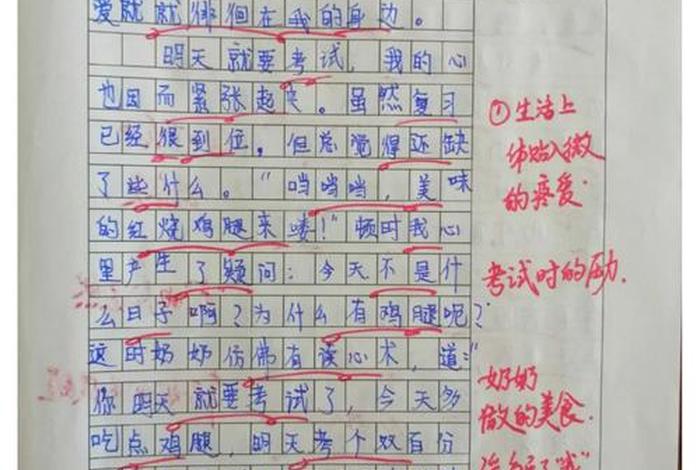 爱就就徘徊在我的身边。
明天就要考试，我的心
也因而紧张起来。虽然复习
已经很到位，但总觉得还缺
了些什么。“当当当，美味
的红烧鸡腿来喽！”顿时我心
里产生了疑问：今天不是什
么日子啊？为什么有鸡腿呢？
这时奶奶仿佛有读心术，道：“
你明天就要考试了，今天多
吃点鸡腿，明天考个双百分
①生活上
体贴入微
的疼爱.
考试时的压力.
奶奶
做的美食.